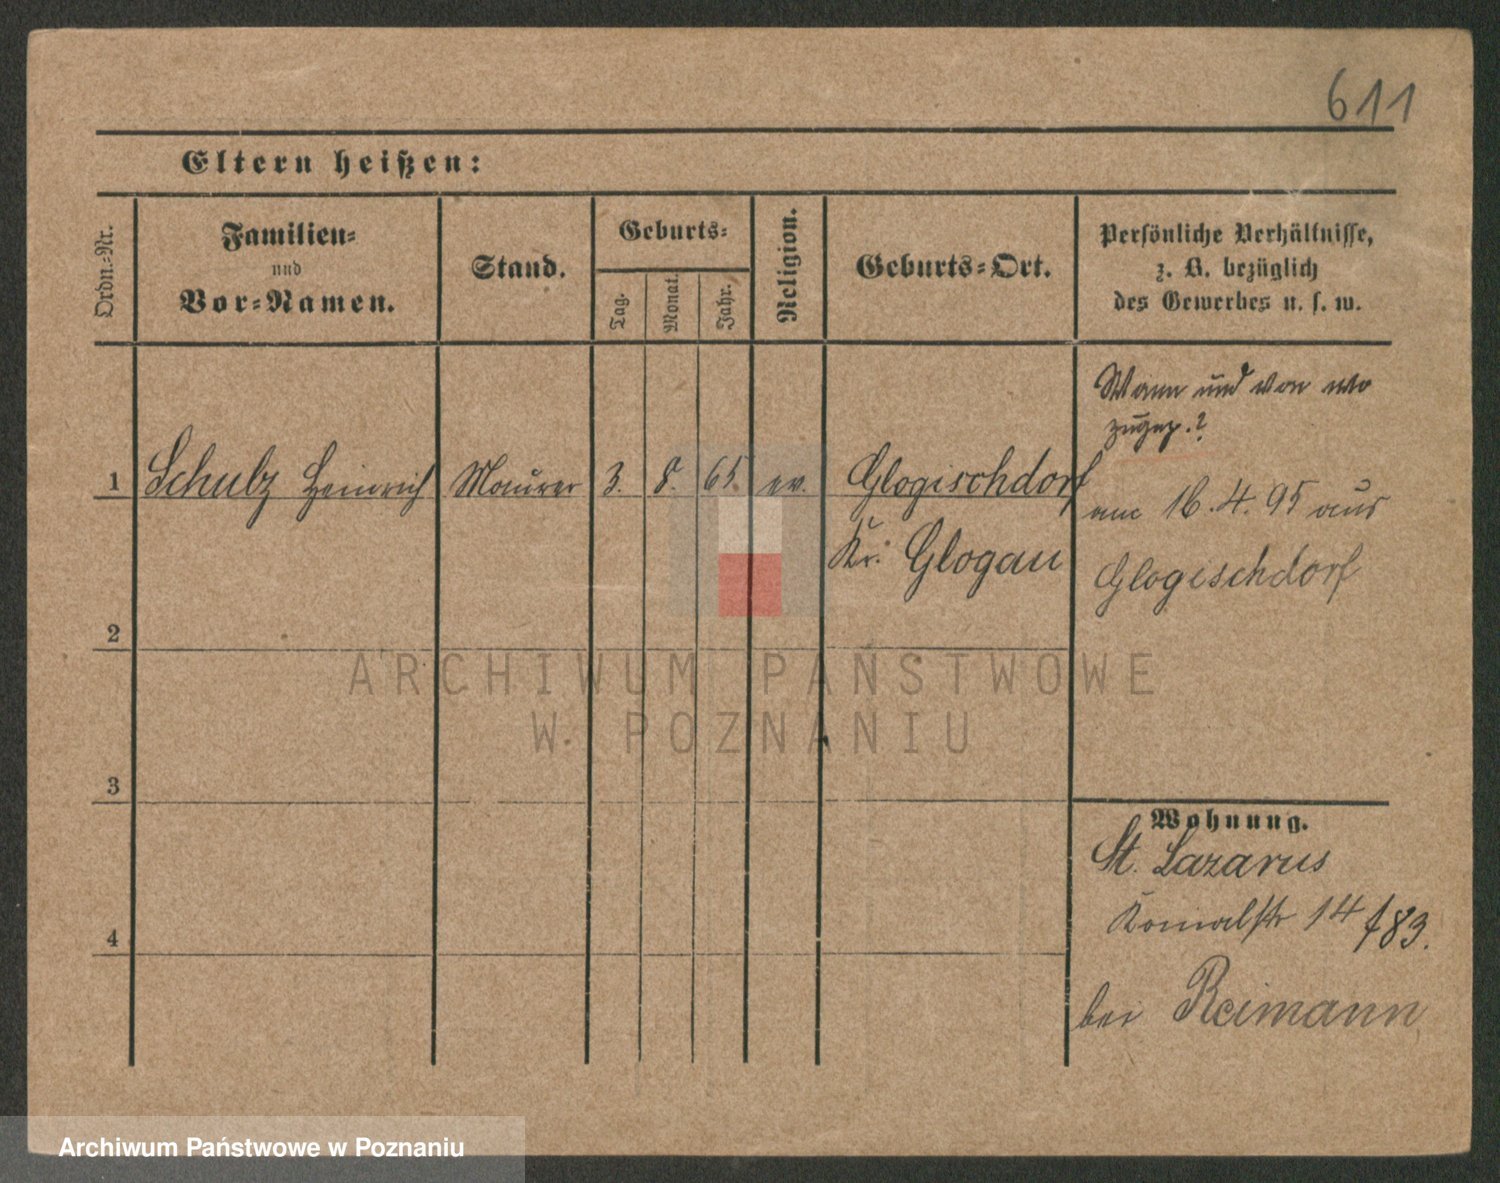 611
Eltern heißen:
Ordn.-Nr.
Familien-
und
Vor-Namen.
Stand.
Geburts-
Tag.
Monat.
Jahr.
Religion.
Geburts-Ort.
Persönliche Verhältnisse,
z. B. bezüglich
des Gewerbes u. s. w.
Wann und von wo
zugez.?
1 Schulz Heinrich Maurer 3. 8. 65. ev. Glogischdorf
Kr. Glogau
am 16.4.95 aus
Glogischdorf
2
3
4
Wohnung.
St. Lazarus
14 /83.
bei Reimann
ARCHIWUM PAŃSTWOWE
W POZNANIU
Archiwum Państwowe w Poznaniu